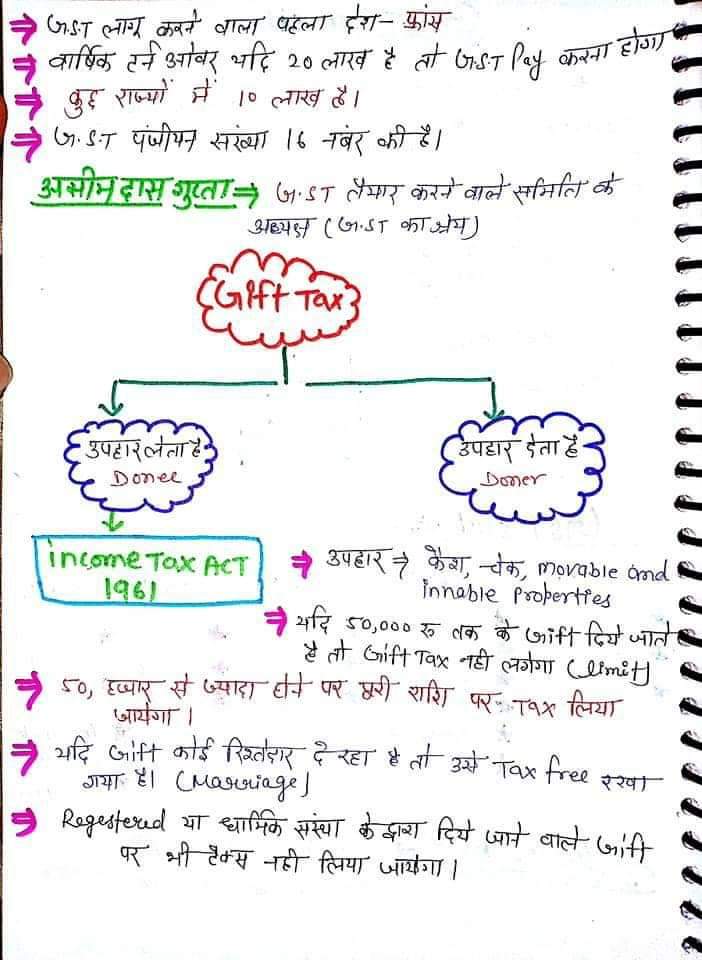 ⇒ G.S.T लागू करने वाला पहला देश - फ्रांस
⇒ वार्षिक टर्न ओवर यदि 20 लाख है तो G.S.T Pay करना होगा
⇒ कुछ राज्यों में 10 लाख है।
⇒ G.S.T पंजीयन संख्या 16 नंबर की है।
असीम दास गुप्ता ⇒ G.ST तैयार करने वाले समिति के
अध्यक्ष (G.ST का श्रेय)
Gift Tax
उपहार लेता है
Donee
उपहार देता है
Doner
income Tax ACT
1961
⇒ उपहार ⇒ कैश, चेक, movable and
innable properties
⇒ यदि 50,000 रु तक के Gift दिये जाते
है तो Gift Tax नही लगेगा (limit)
⇒ 50, हजार से ज्यादा होने पर पूरी राशि पर Tax लिया
जायेगा।
⇒ यदि Gift कोई रिश्तेदार दे रहा है तो उसे Tax free रखा
गया है। (Marriage)
⇒ Regestered या धार्मिक संस्था के द्वारा दिये जाने वाले Gift
पर भी टैक्स नही लिया जायेगा।